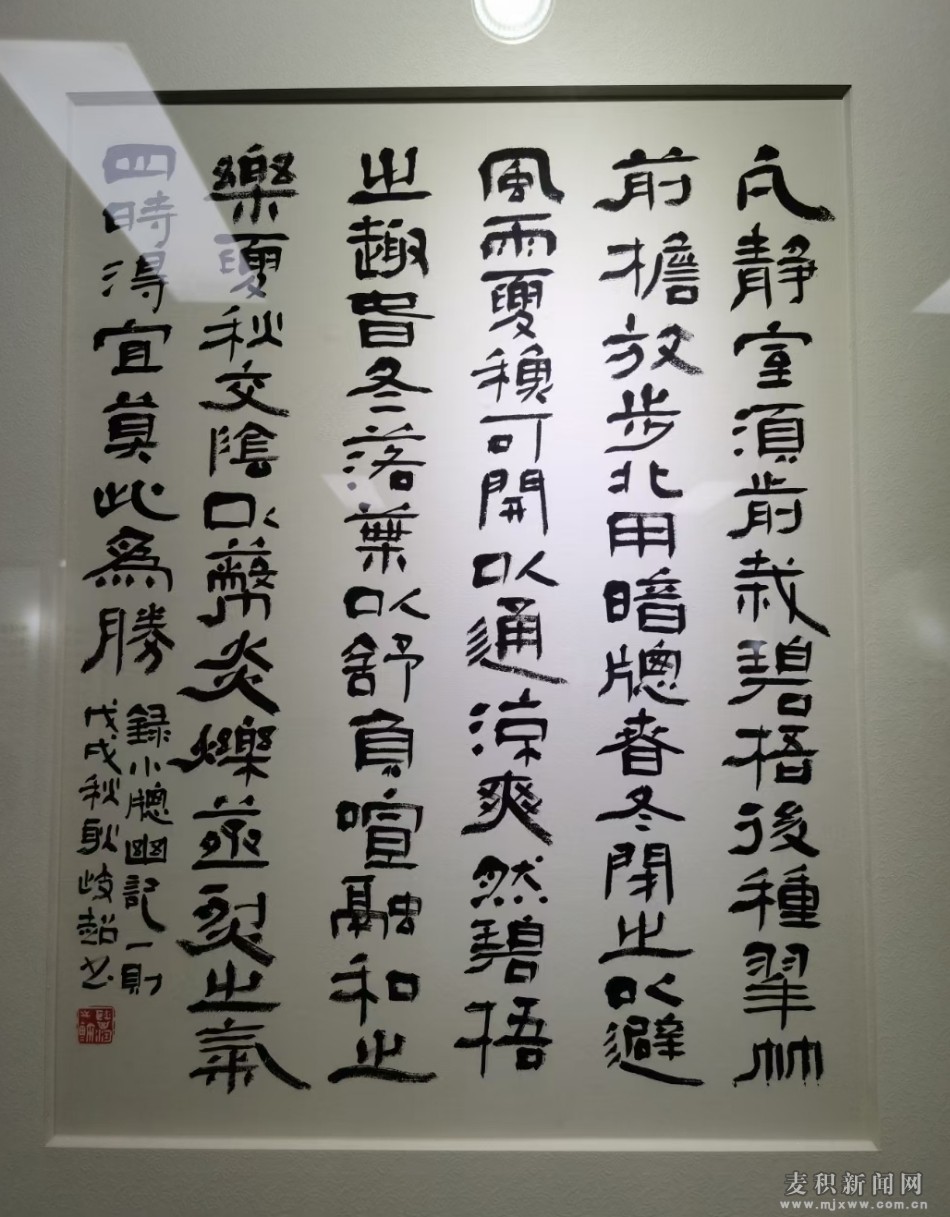 凡静室須前栽碧梧後種翠竹
前檐放步北用暗牕春冬閉之以避
風雨夏穐可開以通涼爽然碧梧
之趣春冬落葉以舒負暄融和之
樂夏秋交陰以蔽炎爍蒸烈之氣
四時得宜莫此爲勝
錄小牕幽記一則
戊戌秋耿歧超书
麦积新闻网
www.mjxww.com.cn